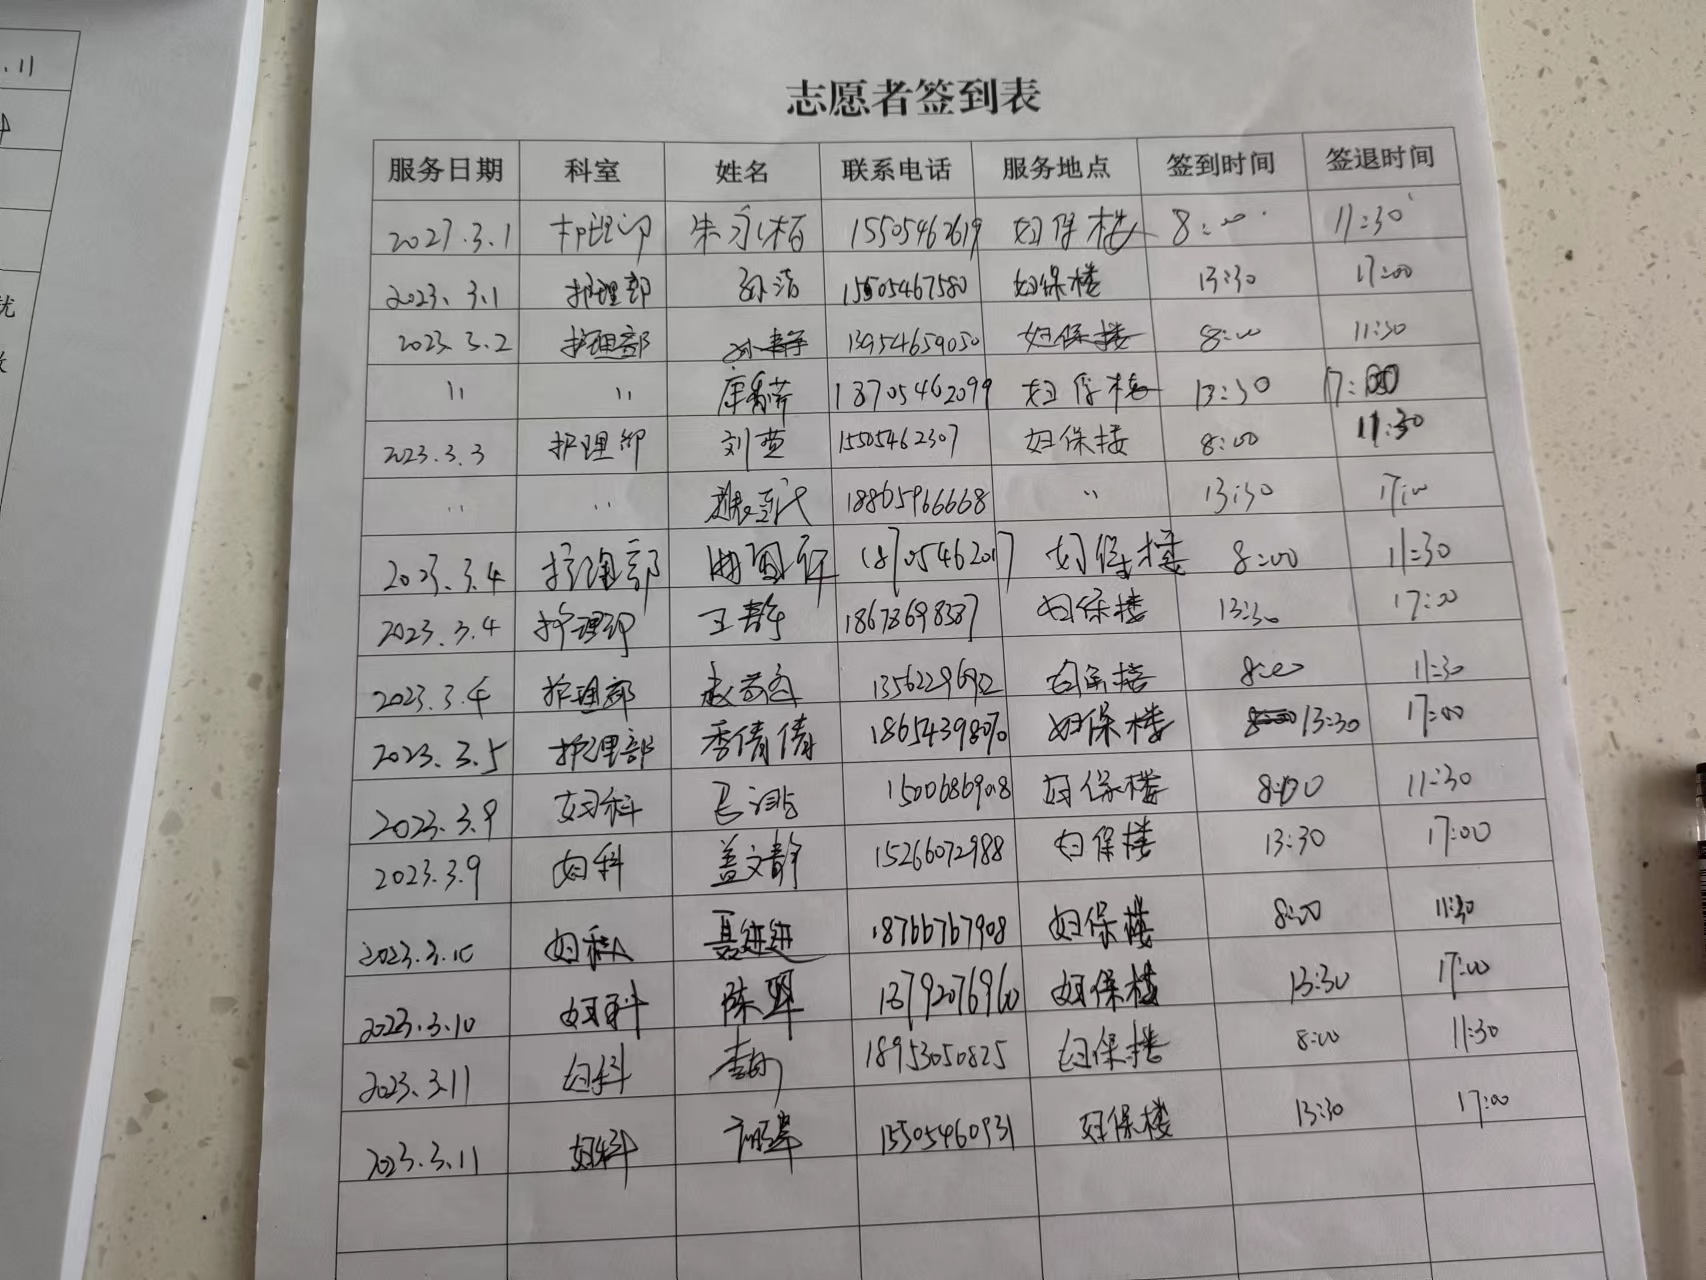 .11
志愿者签到表
服务日期 科室 姓名 联系电话 服务地点 签到时间 签退时间
2023.3.1 护理部 朱永梅 15505462619 妇保楼 8:00 11:30
2023.3.1 护理部 孙洁 15505467580 妇保楼 13:30 17:00
2023.3.2 护理部 孙静 13954659050 妇保楼 8:00 11:30
" " 13705462099 妇保楼 13:30 17:00
2023.3.3 护理部 刘莹 15505462307 妇保楼 8:00 11:30
" " 18865966668 " 13:30 17:00
2023.3.4 护理部 18705462017 妇保楼 8:00 11:30
2023.3.4 护理部 王静 18678698387 妇保楼 13:30 17:00
2023.3.4 护理部 13562296992 妇保楼 8:00 11:30
2023.3.5 护理部 季倩倩 妇保楼 13:30 17:00
2023.3.9 妇科 15006869018 妇保楼 8:00 11:30
2023.3.9 妇科 盖文静 15266072988 妇保楼 13:30 17:00
2023.3.10 妇科 聂进进 18766767908 妇保楼 8:00 11:30
2023.3.10 妇科 陈翠 13792076960 妇保楼 13:30 17:00
2023.3.11 妇科 18953050825 妇保楼 8:00 11:30
2023.3.11 妇科 15505460931 妇保楼 13:30 17:00